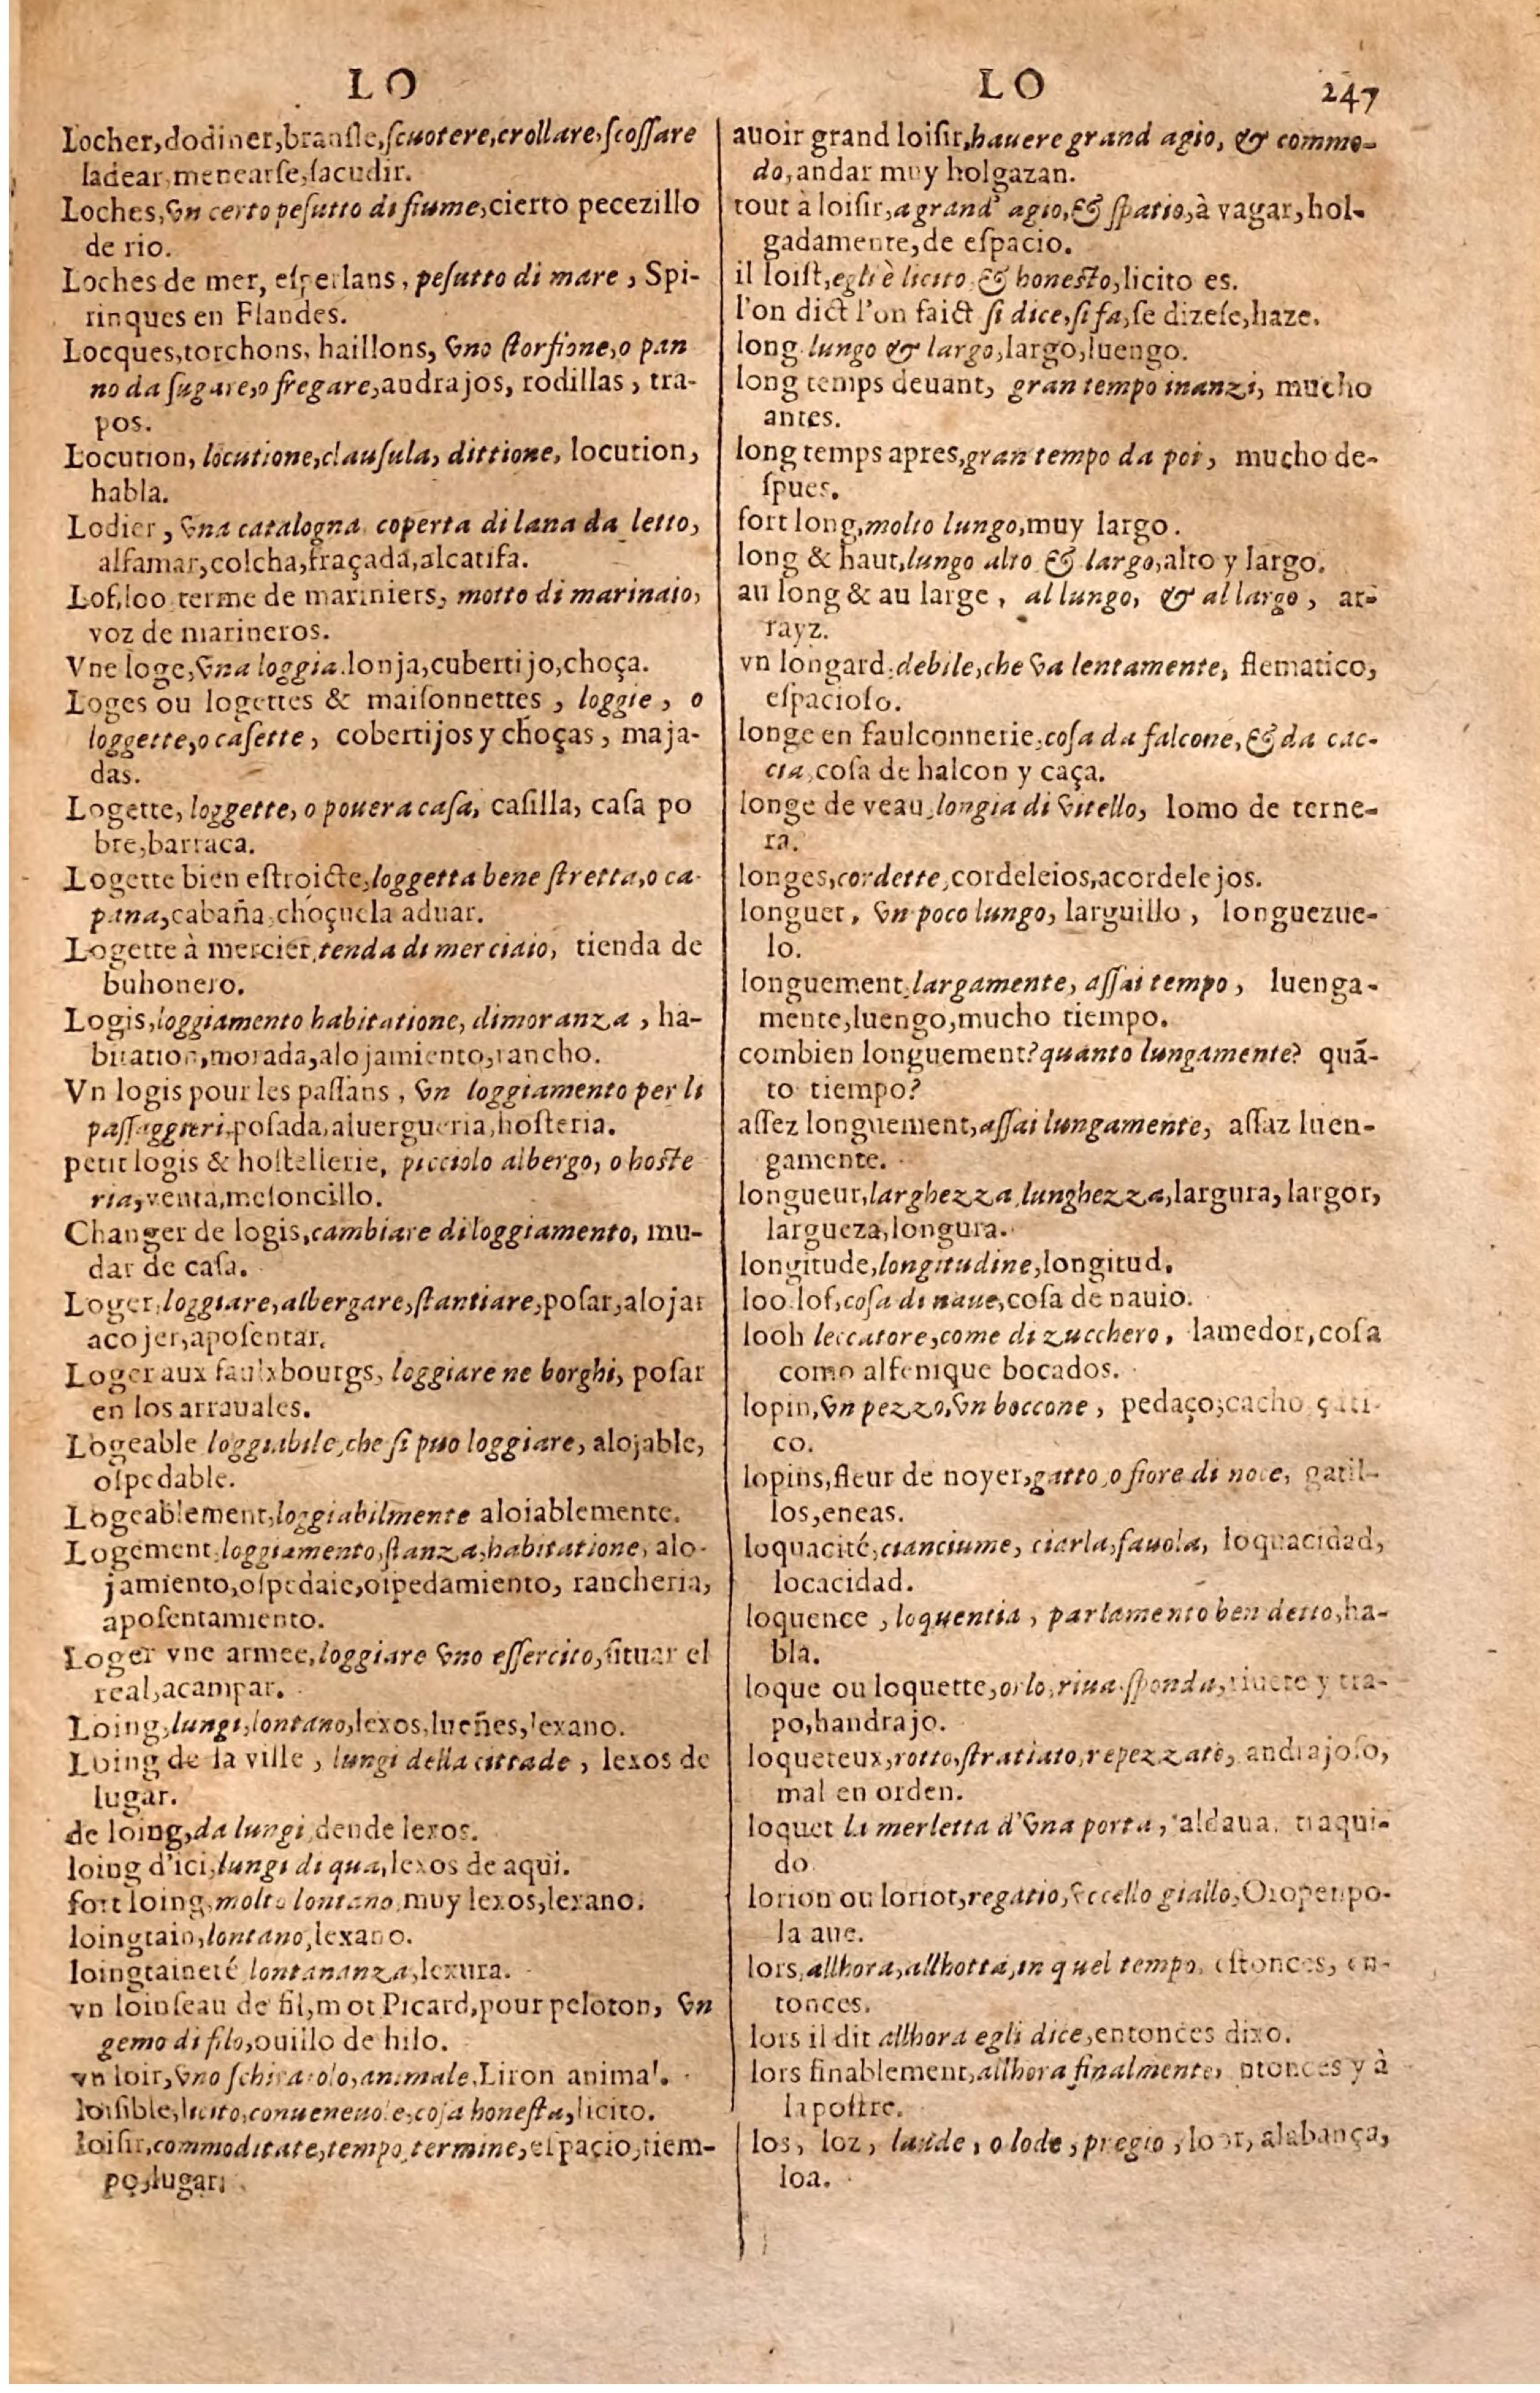 LO
Locher,dodiner,bransle,ſcuotere,crollare,ſcoſſare
ladear,menearſe,ſacudir.
Loches,vn certo peſutto di fiume,cierto pecezillo
de rio.
Loches de mer, eſperlans, peſutto di mare, Spi-
rinques en Flandes.
Locques,torchons, haillons, vno ſtorfione,o pan
no da ſugare,o fregare,andrajos, rodillas, tra-
pos.
Locution, locutione,clauſula, dittione, locution,
habla.
Lodier, vna catalogna, coperta di lana da letto,
alfamar,colcha,fraçada,alcatifa.
Lof,loo terme de mariniers, motto di marinaio,
voz de marineros.
Vne loge,vna loggia.lonja,cubertijo,choça.
Loges ou logettes & maiſonnettes, loggie, o
loggette,o caſette, cobertijos y choças, maja-
das.
Logette, loggette, o pouera caſa, caſilla, caſa po
bre,barraca.
Logette bien eſtroicte,loggetta bene ſtretta,o ca-
pana,cabaña,choçuela aduar.
Logette à mercier,tenda di merciaio, tienda de
buhonero.
Logis,loggiamento habitatione, dimoranza, ha-
bitation,morada,alojamiento,rancho.
Vn logis pour les paſſans, vn loggiamento per li
paſſaggieri,poſada,aluergueria,hoſteria.
petit logis & hoſtellerie, picciolo albergo, o hoſte
ria,venta,meſoncillo.
Changer de logis,cambiare di loggiamento, mu-
dar de caſa.
Loger,loggiare,albergare,ſtantiare,poſar,alojar
acojer,apoſentar.
Loger aux faulxbourgs, loggiare ne borghi, poſar
en los arrauales.
Logeable loggiabile,che ſi puo loggiare, alojable,
oſpedable.
Logeablement,loggiabilmente aloiablemente.
Logement,loggiamento,ſtanza,habitatione, alo-
jamiento,oſpedaie,oſpedamiento, rancheria,
apoſentamiento.
Loger vne armee,loggiare vno eſſercito,ſituar el
real,acampar.
Loing,lungi,lontano,lexos,lueñes,lexano.
Loing de la ville, lungi della cittade, lexos de
lugar.
de loing,da lungi,dende lexos.
loing d'ici,lungi di qua,lexos de aqui.
fort loing,molto lontano,muy lexos,lexano.
loingtain,lontano,lexano.
loingtaineté lontananza,lexura.
vn loinſeau de fil,mot Picard,pour peloton, vn
gemo di filo,ouillo de hilo.
vn loir,vno animale.Liron animal.
loiſible,licito,conueneuole,coſa honeſta,licito.
loiſir,commoditate,tempo,termine,eſpacio,tiem-
po,lugar.
LO 247
auoir grand loiſir,hauere grand agio, & commo-
do,andar muy holgazan.
tout à loiſir,a grand' agio,& ſpatio,à vagar,hol-
gadamente,de eſpacio.
il loiſt,egli è licito & honeſto,licito es.
l'on dict l'on faict ſi dice,ſi fa,ſe dizeſe,haze.
long lungo & largo,largo,luengo.
long temps deuant, gran tempo inanzi, mucho
antes.
long temps apres,gran tempo da poi, mucho de-
ſpues.
fort long,molto lungo,muy largo.
long & haut,lungo alto & largo,alto y largo.
au long & au large, al lungo, & al largo, ar-
rayz.
vn longard,debile,che va lentamente, flematico,
eſpacioſo.
longe en faulconnerie,coſa da falcone,& da cac-
cia,coſa de halcon y caça.
longe de veau,longia di vitello, lomo de terne-
ra.
longes,cordette,cordeleios,acordelejos.
longuet, vn poco lungo, larguillo, longuezue-
lo.
longuement,largamente, aſſai tempo, luenga-
mente,luengo,mucho tiempo.
combien longuement?quanto lungamente? quã-
to tiempo?
aſſez longuement,aſſai lungamente, aſſaz luen-
gamente.
longueur,larghezza,lunghezza,largura, largor,
largueza,longura.
longitude,longitudine,longitud.
loo lof,coſa di naue,coſa de nauio.
looh leccatore,come di zucchero, lamedor,coſa
como alfenique bocados.
lopin,vn pezzo,vn boccone, pedaço,cacho çati-
co.
lopins,fleur de noyer,gatto,o fiore di noce, gatil-
los,eneas.
loquacité,cianciume, ciarla,fauola, loquacidad,
locacidad.
loquence, loquentia, parlamento ben detto,ha-
bla.
loque ou loquette,orlo,riua.ſponda,riuete y tra-
po,handrajo.
loqueteux,rotto,ſtratiato,repezzato, andrajoſo,
mal en orden.
loquet la merletta d'vna porta, aldaua, traqui-
do.
lorion ou loriot,regatio,vccello giallo,Oropenpo-
la aue.
lors,allhora,allhotta,in quel tempo, eſtonces, en-
tonces.
lors il dit allhora egli dice,entonces dixo.
lors finablement,allhora finalmente, ntonces y à
la poſtre.
los, loz, laude, o lode, pregio, loor, alabança,
loa.